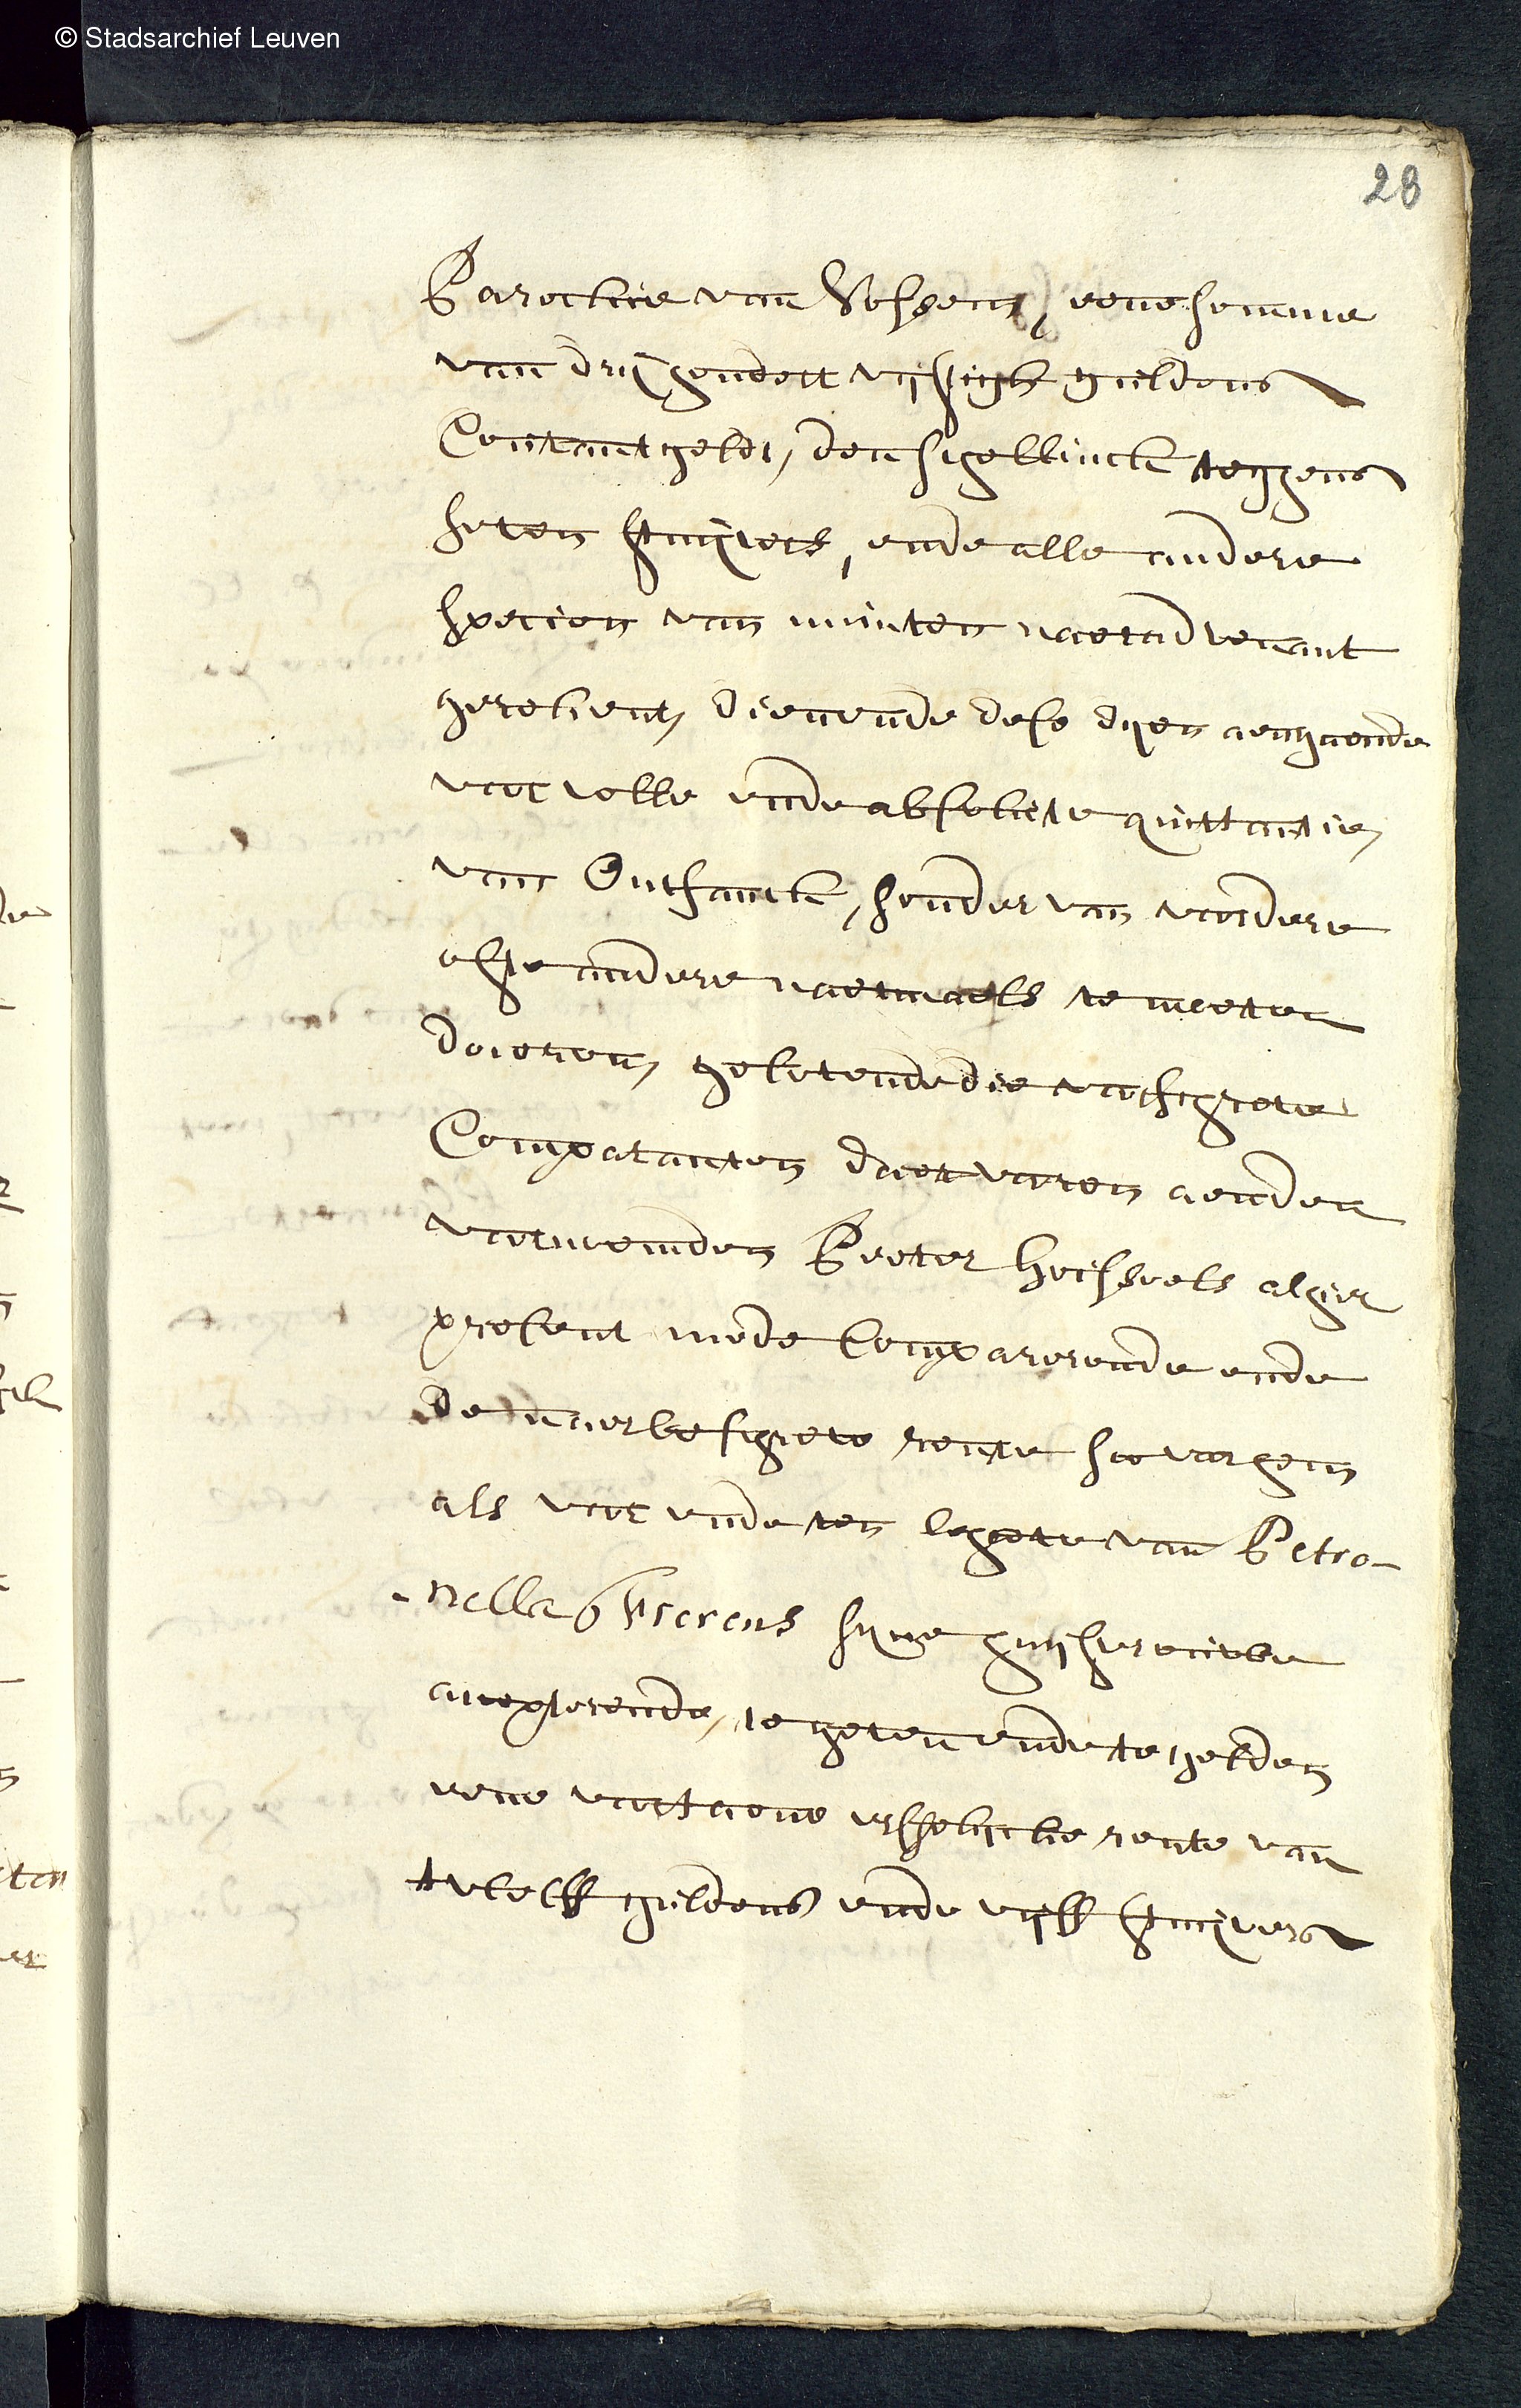 © Stadsarchief Leuven
28
Parochie van Vossem, eene somme
van drij hondert vijftigh guldens
Contant gelt, den schellinck tegens
seven stuijvers, ende alle andere
specien van munten naer advenant
gerekent, dienende dese dyen aengaende
voor volle ende absolute quittantie
van Ontfanck, sonder van voordere
ofte andere naermaels te moeten
doceren, gelovende die voorschreve
Comparanten daer voren aen den
voornoemden Peeter Heyssels alhier
present mede Comparerende ende
de naerbeschreve rente soo voor hem
als voor ende ten behoeve van Petro-
-nella Fierens syne huysvrouwe
accepterende, te geven ende te gelden
eene voortaene erffelycke rente van
twelff guldens ende vyff stuyvers